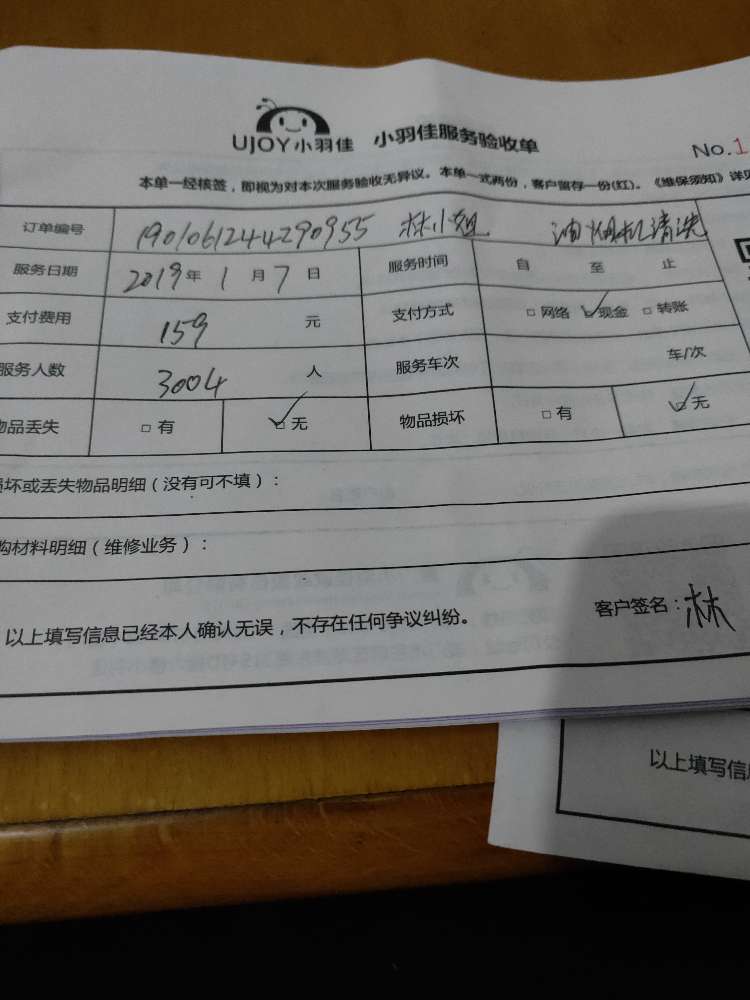 UJOY小羽佳 小羽佳服务验收单
No.1
本单一经核签，即视为对本次服务验收无异议。本单一式两份，客户留存一份(红)。《维保须知》详见
订单编号 1901061244290955 林小姐 油烟机清洗
服务日期 2019年 1 月 7 日 服务时间 自 至 止
支付费用 159 元 支付方式 □网络 ☑现金 □转账
服务人数 3004 人 服务车次 车/次
物品丢失 □有 ☑无 物品损坏 □有 ☑无
损坏或丢失物品明细（没有可不填）：
购材料明细（维修业务）：
以上填写信息已经本人确认无误，不存在任何争议纠纷。 客户签名：林
以上填写信息